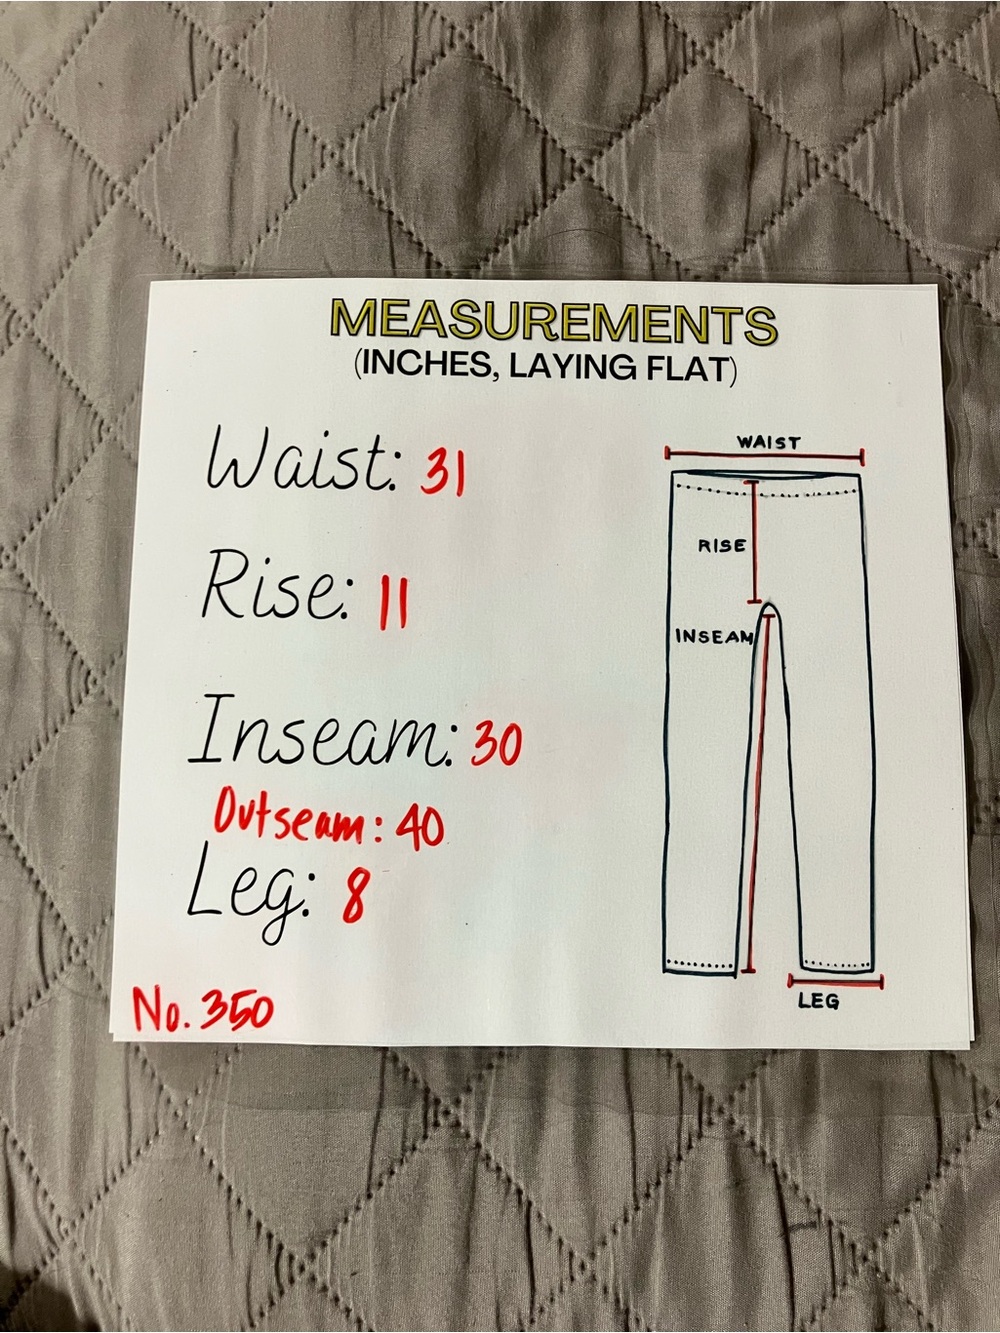 MEASUREMENTS
(INCHES, LAYING FLAT)
Waist: 31
Rise: 11
Inseam: 30
Outseam: 40
Leg: 8
No. 350
WAIST
RISE
INSEAM
LEG